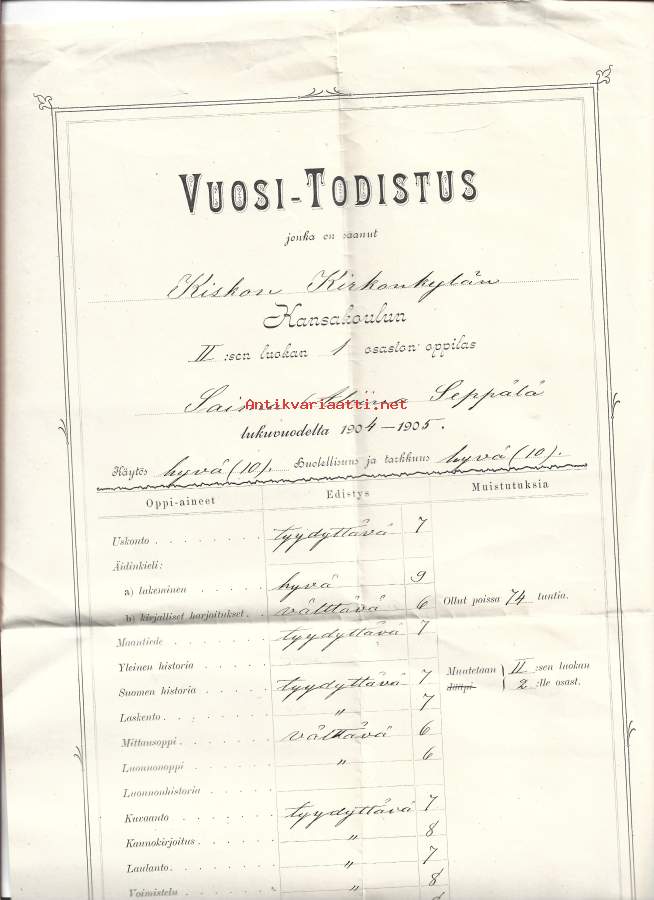 VUOSI-TODISTUS
jonka on saanut
Kiskon Kirkonkylän
Kansakoulun
II :sen luokan 1 osaston oppilas
Seppälä
Antikvariaatti.net
lukuvuodelta 1904—1905.
Käytös hyvä (10). Huolellisuus ja tarkkuus hyvä (10).
Oppi-aineet Edistys Muistutuksia
Uskonto tyydyttävä 7
Äidinkieli:
a) lukeminen hyvä 9
b) kirjalliset harjoitukset välttävä 6 Ollut poissa 74 tuntia.
Maantiede tyydyttävä 7
Yleinen historia
Suomen historia tyydyttävä 7 Muutetaan II :sen luokan
jääpi 2 :lle osast.
Laskento „ 7
Mittausoppi välttävä 6
Luonnonoppi „ 6
Luonnonhistoria
Kuvaanto tyydyttävä 7
Kaunokirjoitus „ 8
Laulanto „ 7
Voimistelu „ 8